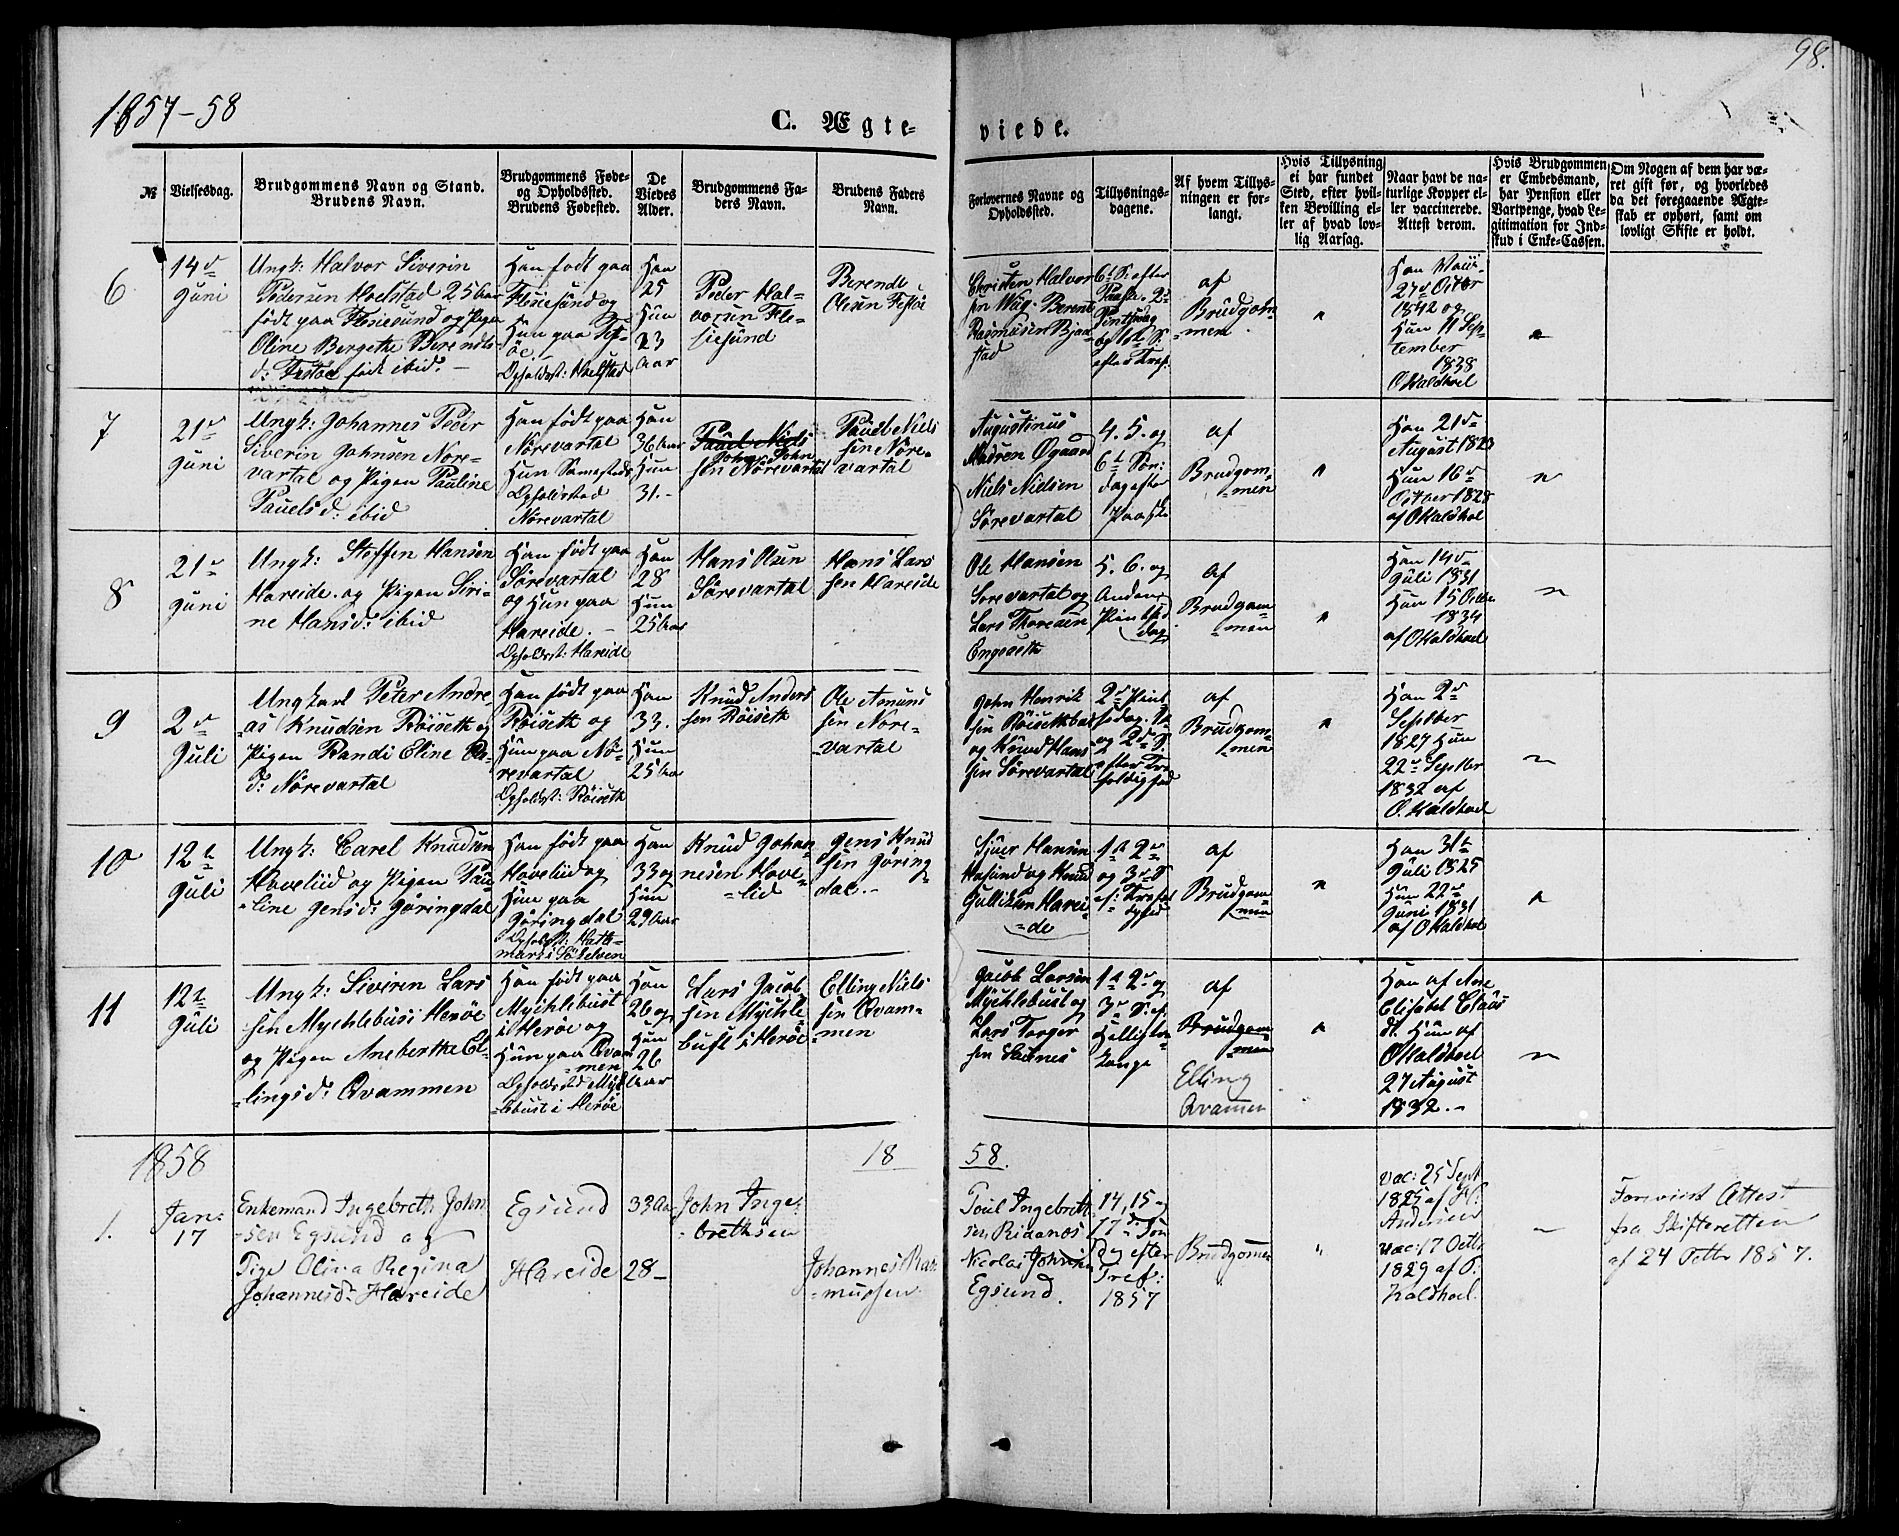 98.
1857-58
C. Ægte-
viede.
№
Vielsesdag.
Brudgommens Navn og Stand.
Brudens Navn.
Brudgommens Føde-
og Opholdssted.
Brudens Fødested.
De
Viedes
Alder.
Brudgommens Fa-
ders Navn.
Brudens Faders
Navn.
Forlovernes Navne og
Opholdssted.
Tillysnings-
dagene.
Af hvem Tillys-
ningen er for-
langt.
Hvis Tillysning
ei har fundet
Sted, efter hvil-
ken Bevilling el-
ler af hvad lov-
lig Aarsag.
Naar havt de na-
turlige Kopper el-
ler vaccinerede.
Attest derom.
Hvis Brudgommen
er Embedsmand,
har Pension eller
Vartpenge, hvad Le-
gitimation for Ind-
skud i Enke-Cassen.
Om Nogen af dem har væ-
ret gift før, og hvorledes
da det foregaaende Ægte-
skab er ophørt, samt om
lovligt Skifte er holdt.
6
14d
Juni
Ungk: Halvor Siverin
Pedersen Hoelstad 25 Aar
født paa Flusiesund og Pigen
Oline Bergethe Berendts
d: Festøe født ibid. -
Han født paa
Flusiesund og
Hun paa Fest-
øe.
Opholdsst: Hoelstad
Han
25
Hun
23
Aar
Peder Hal-
vorsen Flu-
siesund
Berendt
Olsen Festøe
Christen Halvor
sen Wiig. Berent
Rasmusen Bjaa-
stad
6t S: efter
Paaske. 2d
Pintsedag
og 1st S.
efter Tref:
af
Brudgom-
men
"
Han Vacci-
27d Octbr
1842 og
Hun 11 Sep-
tember
1838
O Kaldhoel
"
7
21d
Juni
Ungk: Johannes Peder
Siverin Johnsen Nøre-
vartal og Pigen Pauline
Pauelsd: ibid
Han født paa
Nørevartal
Hun Sammesteds
Opholdsted
Nørevartal
Han
36 Aar
Hun
31. -
Pauel Niels
John John
sen Nørevartal
Pauel Niels
sen Nøre-
vartal
Augustinus
Madsen Øgaard
Niels Nielsen
Sørevartal
4. 5. og
6t Søn:
dag efter
Paaske
af
Brudgom-
men
"
Han 21d
August 1823
Hun 16d
October 1828
af O Kaldhol
"
8
21d
Juni
Ungk: Steffen Hansen
Hareide og Pigen Siri-
ne Hansd: ibid
Han født paa
Sørevartal
og Hun paa
Hareide. -
Opholdsst: Hareide
Han
28
Hun
25 Aar
Hans Olsen
Sørevartal
Hans Lars
sen Hareide
Ole Hansen
Sørevartal og
Lars Thoresen
Engesæth
5. 6. og
Anden
Pintsed
dag
af
Brudgom-
men
"
Han 14d
Juli 1831
Hun 15 Octbr
1834
af O Kaldhoel
"
9
2d
Juli
Ungkarl Peter Andre
as Knudsen Røiseth og
Pigen Randi Eline Ols-
d: Nørevartal
Han født paa
Røiseth og
Hun paa Nø-
revartal
Opholdsst: Røiseth
Han
33.
Hun
25 Aar
Knud Anders
sen Røiseth
Ole Amund
sen Nøre-
vartal
John Henrik
sen Røisethbak
og Knud Hans
sen Sørevartal
2d Pint
sedag. 1st
og 2d S.
efter Tre-
foldighed
af
Brudgom-
men
"
Han 2d
Septber
1827 Hun
22d Septbr
1832 af
O. Kaldhoel
"
10
12t
Juli
Ungk: Carel Knudsen
Hovelied og Pigen Pau
line Jensd: Gøringdal
Han født paa
Hovelied og
Hun paa
Gøringdal
Opholdst: Hatle-
mark i Sœlefven
Han
33 og
Hun
29 Aar
Knud Johan-
nesen Hove-
lid
Jens Knud
sen Gøring-
dal. -
Sjver Hansen
Hasund og Knud
Gulliksen Harei-
de
1st 2d
og 3d S
ef: Trefol
dighed
af
Brudgom-
men
"
Han 31t
Juli 1825
Hun 22d
Juni 1831
af O Kaldhoel
"
11
12t
Juli
Ungk: Siveren Lars
sen Myckhlebust Herøe
og Pigen Aneberthe El-
lingsd: Qvammen
Han født paa
Mychlebust
i Herøe og
Hun paa Qvam
men
Opholdsted Mykl
ebust i Herøe
Han
26 og
Hun
26
Aar
Lars Jacob
sen Mychle
bust i Herøe
Elling Niels
sen Qvam-
men
Jacob Larsen
Mychlebust og
Lars Torger
sen Saunes
1st 2d og
3d S: ef.
Helligtre-
konge
af
Brudgom-
men
Elling
Qvamen
"
Han af Ane
Elisabet Claus
dt Hun af
O Kaldhoel
27 August
1832. -
"
1858
18
58.
1.
Jan:
17
Enkemand Ingebreth John
sen Egsund og
Pige Olina Regina
Johannesdr Hareide
Egsund
Hareide
33 Aar
28 -
John Inge-
brethsen
Johannes Ras
mussen
Poul Ingebreth
sen Ridanæs
Nicolai Johnsen
Egsund.
14, 15 og
17d Søn
dag efter
Tref:
1857
Brudgomen
"
Vac: 25 Sept
1825 af H.
Andersen
Vac: 17 Octb
1829 af O.
Kaldhoel.
-
Forevist Attest
fra Skifteretten
af 24 Octbr 1857.